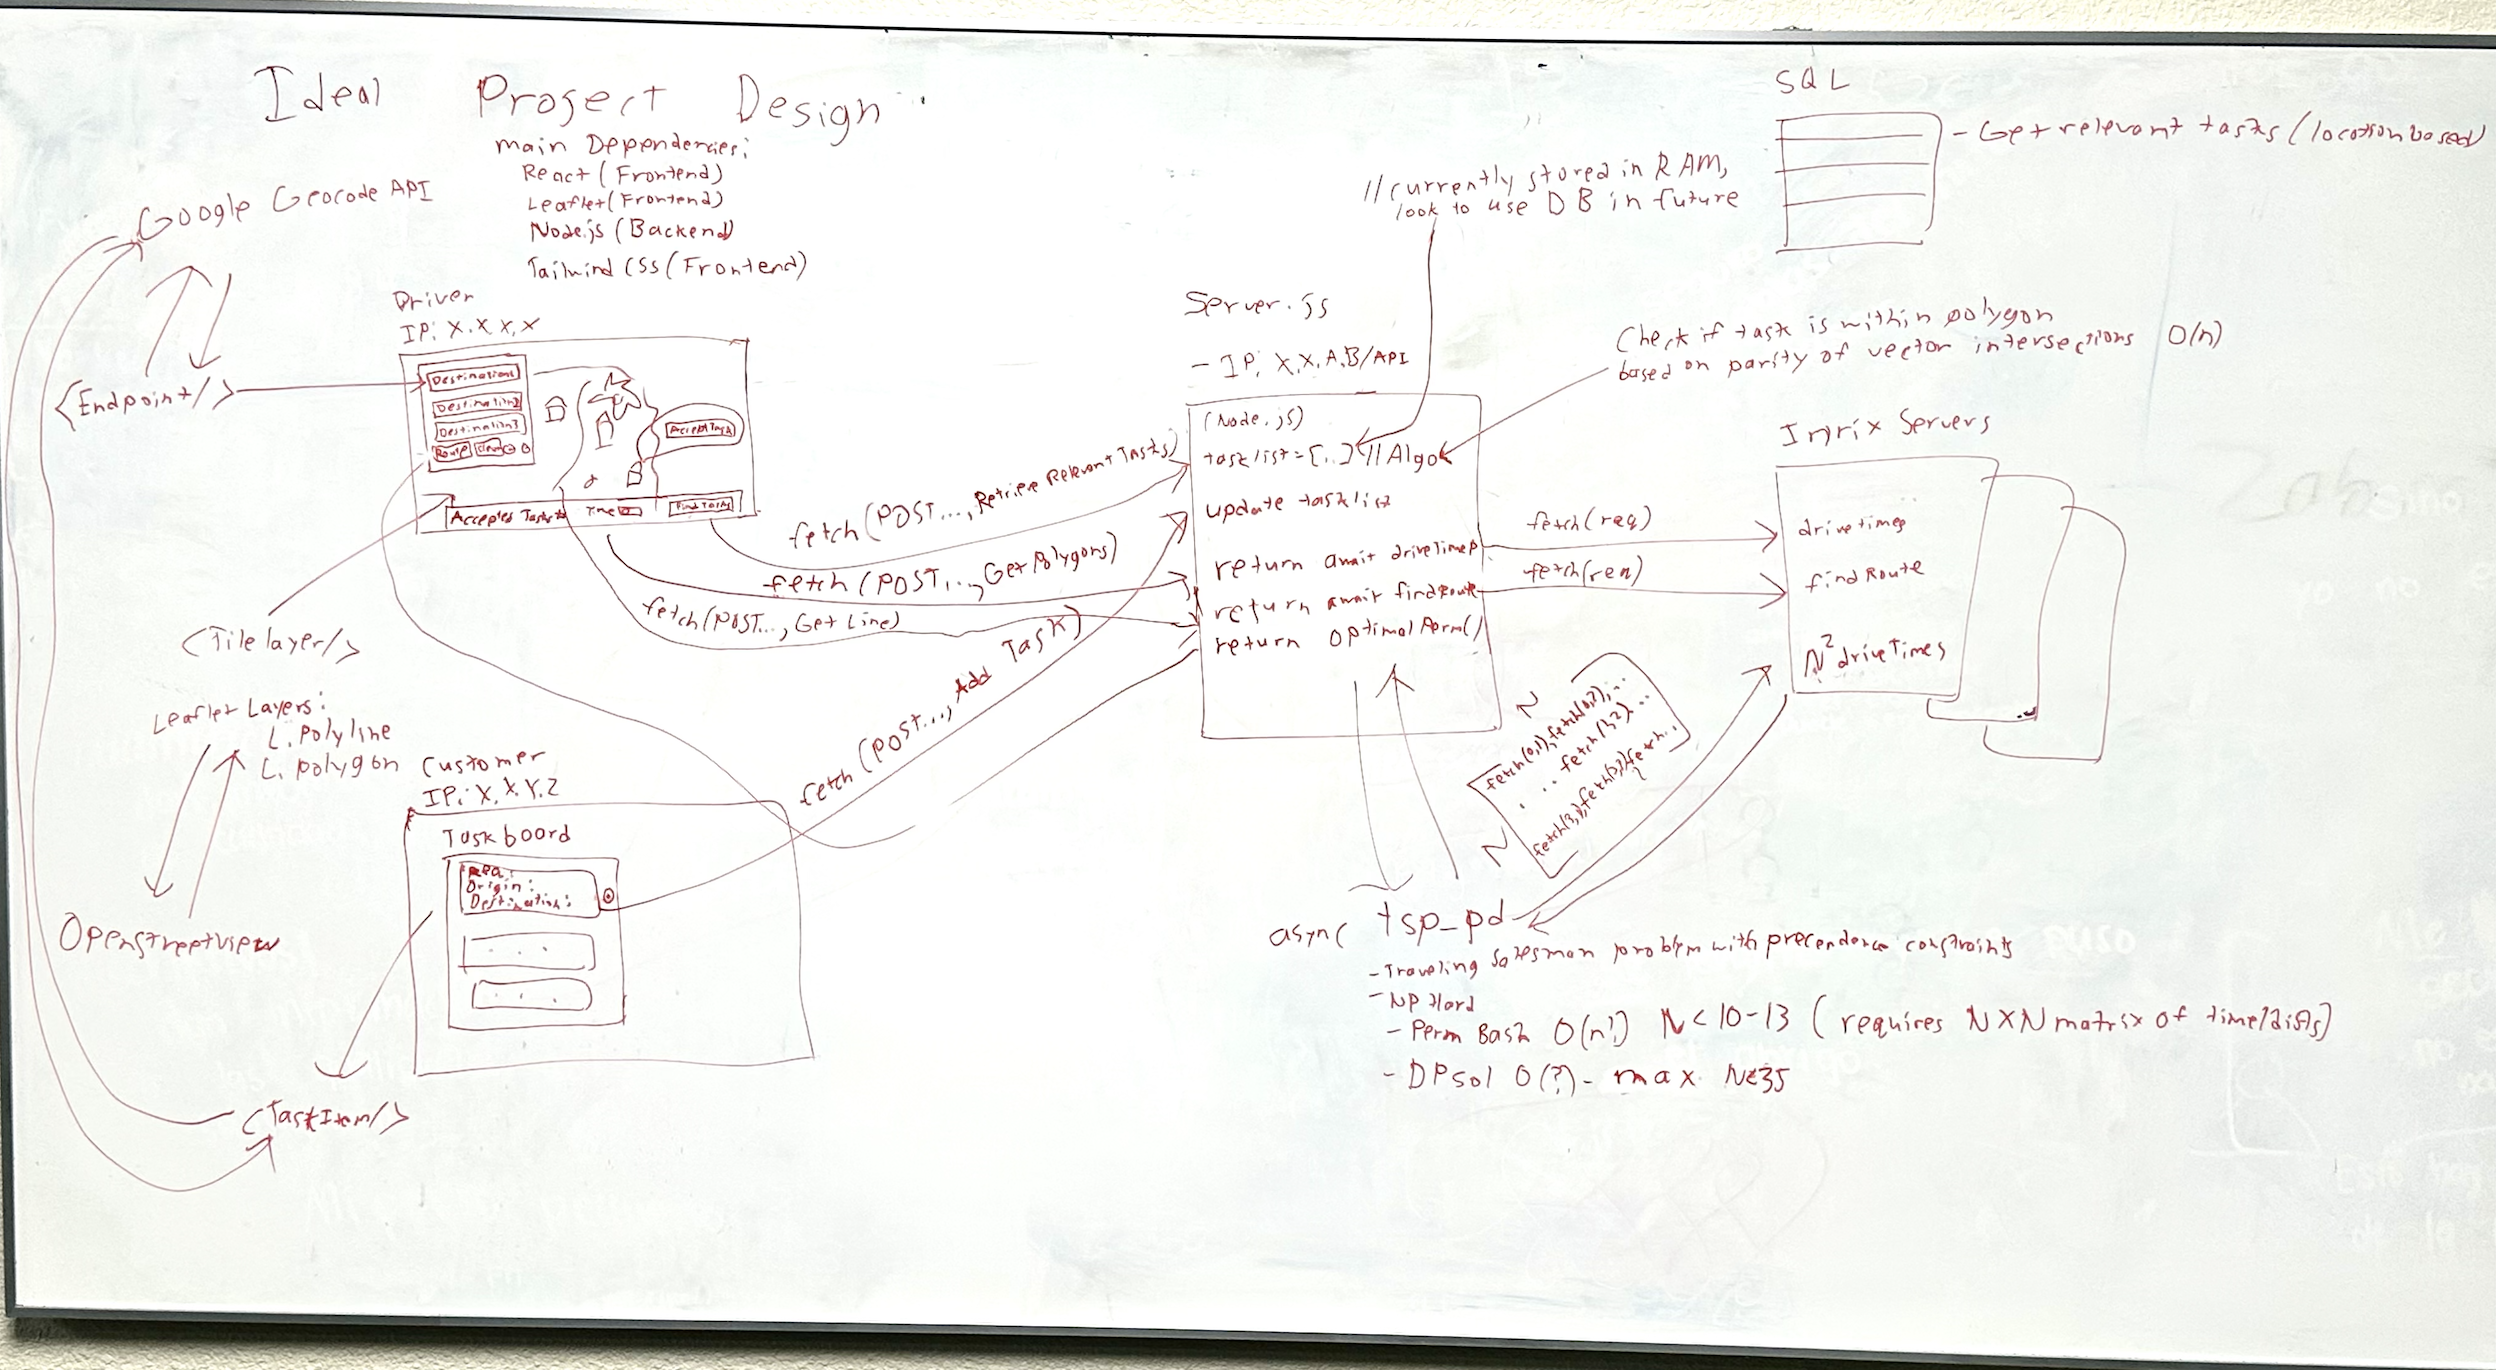 Ideal Prosect Design
main Dependencies:
React (Frontend)
Leaflet (Frontend)
Node.js (Backend)
Tailwind CSS (Frontend)
Google Geocode API
<Endpoint/>
Driver
IP: X.X.X.X
Destination1
Destination2
Destination3
Route
Accept Task
Accepted Tasks
Time
Find Tasks
<Tilelayer/>
Leaflet Layers:
L. Polyline
L. polygon
Openstreetview
Customer
IP: X.X.Y.Z
Taskboard
Req:
Origin:
Destination:
<TaskItem/>
fetch (POST..., Retrieve Relevant Tasks)
fetch (POST..., Get Polygons)
fetch (POST..., Get Line)
fetch (POST..., Add Task)
Server.js
- IP: X.X.A.B/API
(Node.js)
tasklist = [..] // Algo
update tasklist
return await driveTimes
return await findRoute
return optimalPerm()
// currently stored in RAM,
look to use DB in future
SQL
- Get relevant tasks (location based)
Check if task is within polygon
based on parity of vector intersections O(n)
Inrix Servers
drivetimes
findRoute
N² driveTimes
fetch(req)
fetch(req)
N
N
fetch(0,1), fetch(0,2), ...
... fetch(1,2) ...
async tsp_pd
- Traveling Salesman problem with precendence constraints
- NP Hard
- Perm Bash O(n!) N<10-13 (requires NXN matrix of time/dists)
- DPsol O(?) - max N≤35